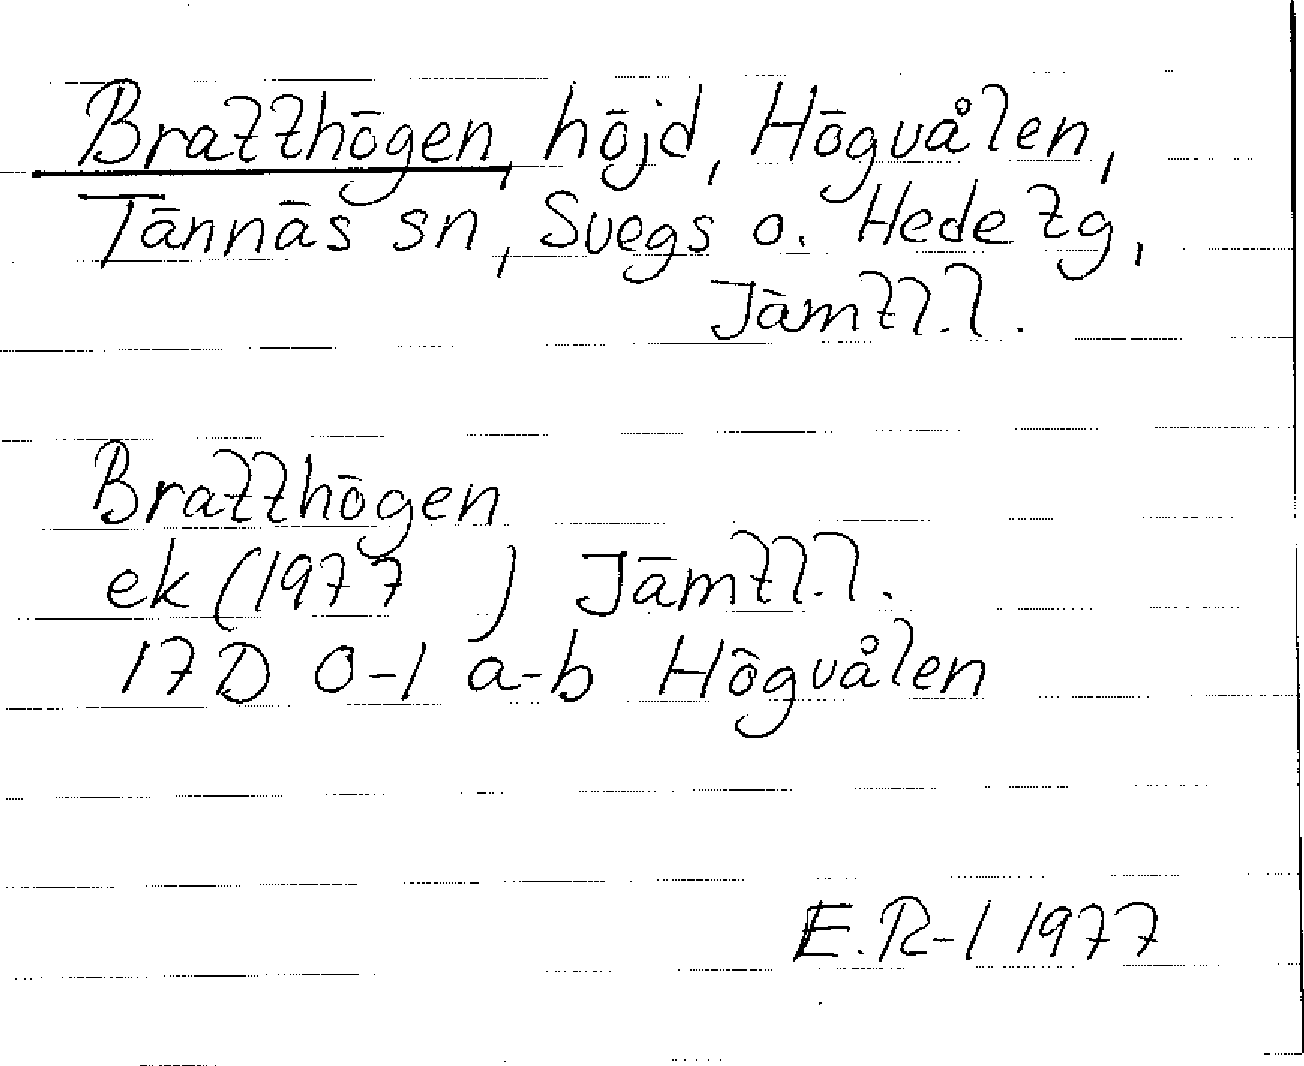 Bratthögen, höjd, Högvålen,
Tännäs sn, Svegs o. Hede tg,
Jämtl.l.
Bratthögen
ek (1977 ) Jämtl.l.
17 D 0-1 a-b Högvålen
E.R-l 1977